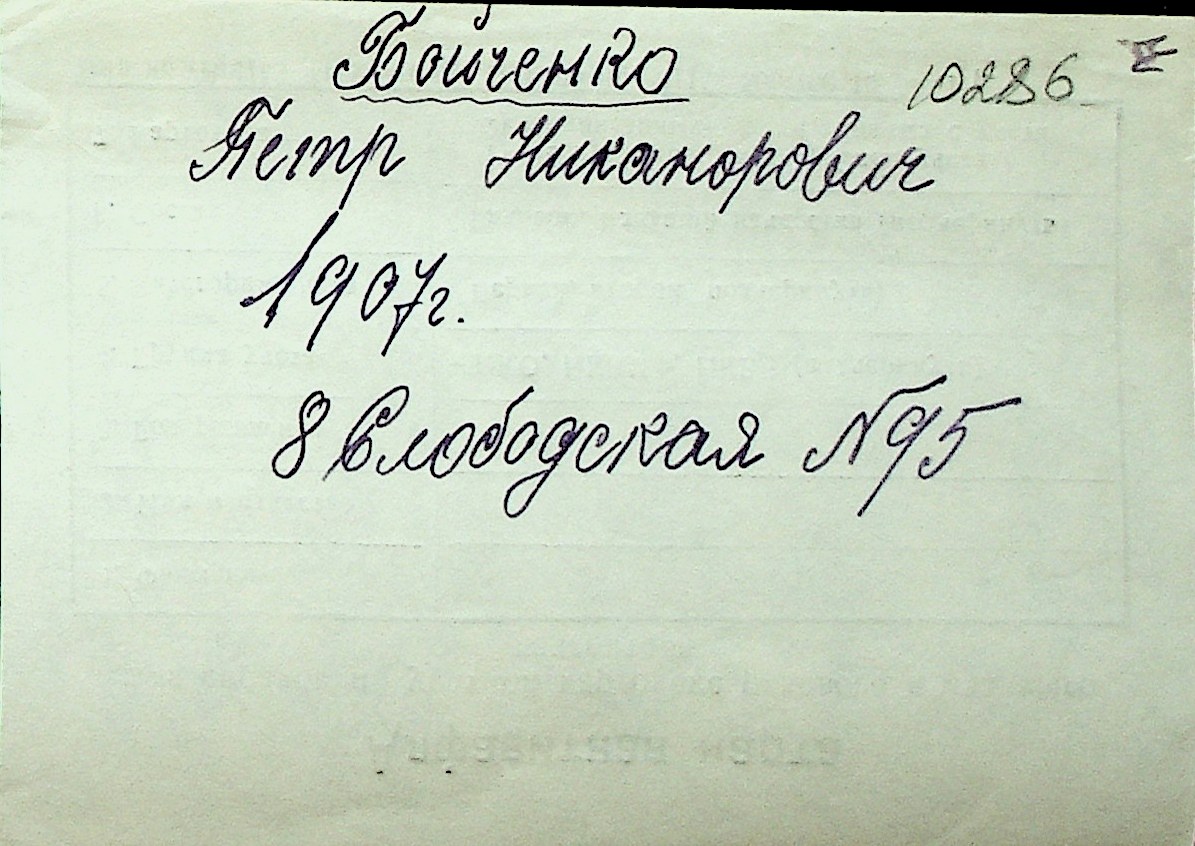 Бойченко
10286
Петр Никанорович
1907г.
8 Слободская №95